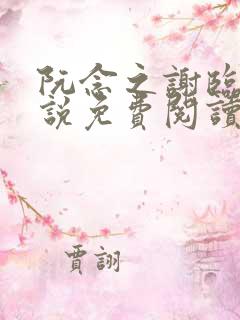 阮念之謝臨
說免費閱讀
賈詡